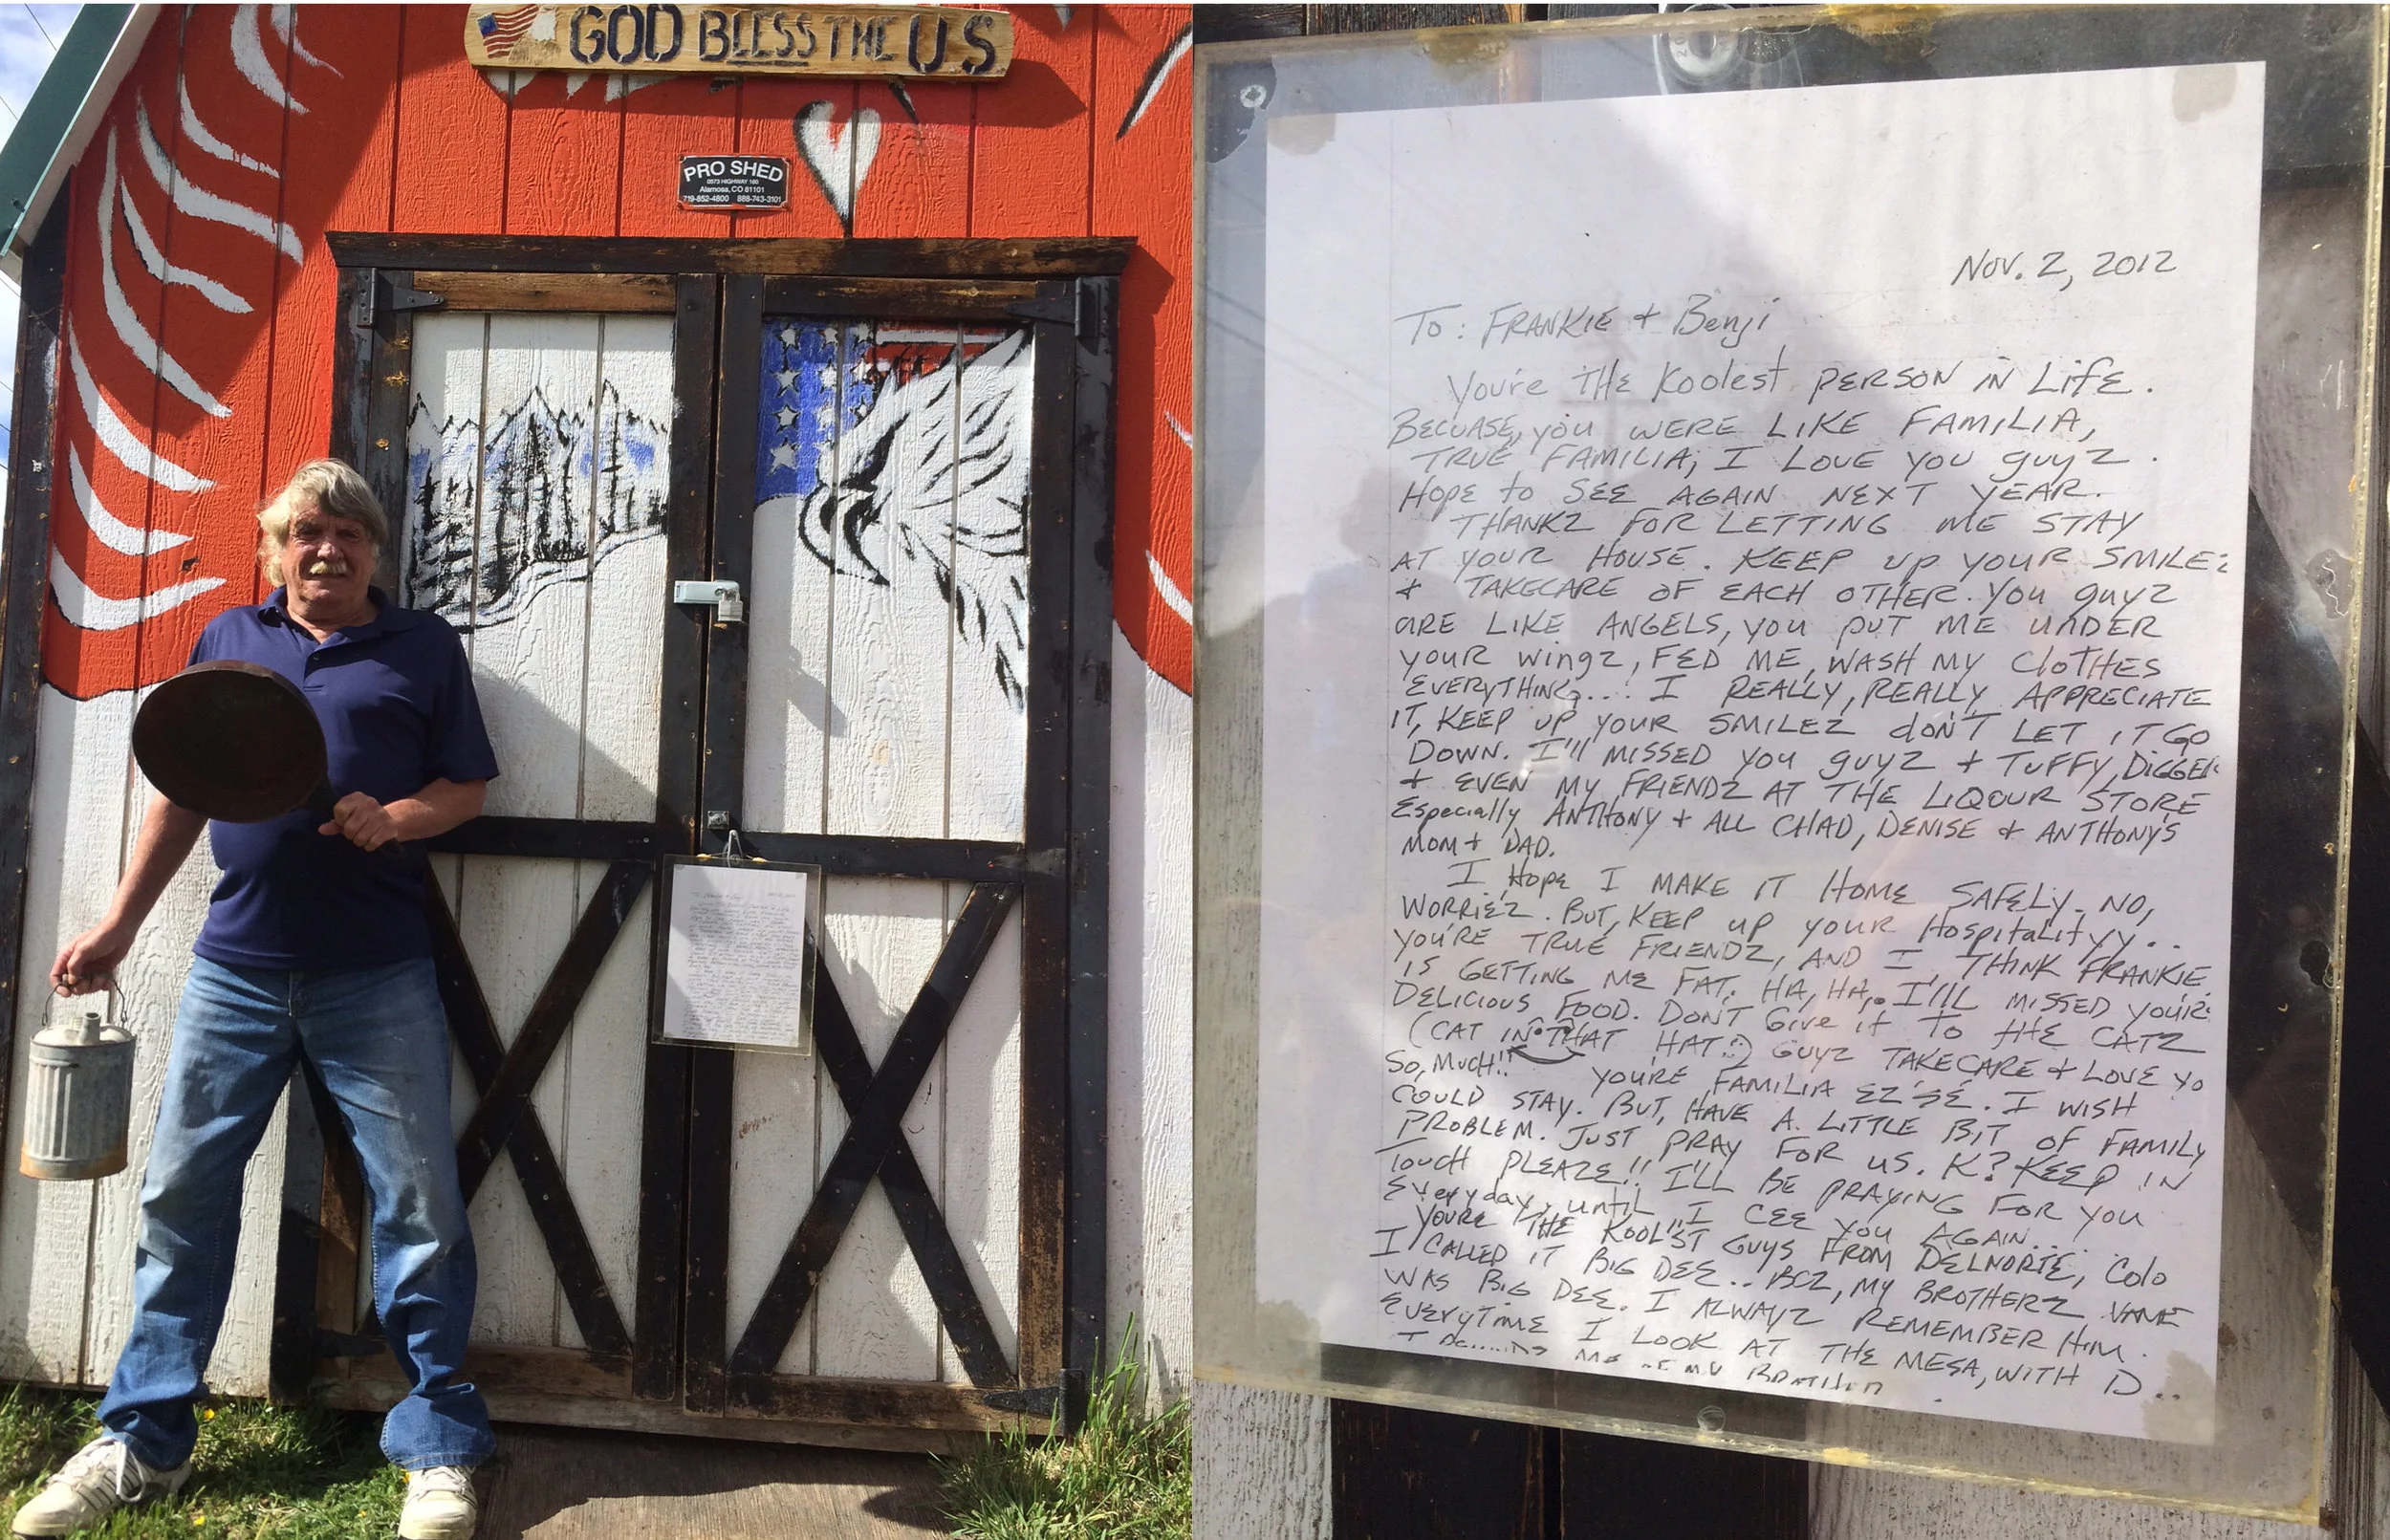 GOD BLESS THE U.S
PRO SHED
0573 HIGHWAY 160
Alamosa, CO 81101
719-852-4800 888-743-3101
NOV. 2, 2012
TO: FRANKIE + Benji
You're THE Koolest PERSON IN LiFE.
BECUASE, you WERE LIKE FAMILIA,
TRUE FAMILIA; I LOVE YOU guyz.
Hope to SEE AGAIN NEXT YEAR.
THANKZ FOR LETTING ME STAY
AT YOUR HOUSE. KEEP up YOUR SMILEz
+ TAKECARE OF EACH OTHER. You guyz
ARE LIKE ANGELS, YOU PUT ME UNDER
YOUR wingz, FED ME, WASH MY CloTHES
EVERYTHING... I REALLY, REALLY APPRECIATE
IT, KEEP UP YOUR SMILEZ doN'T LET IT GO
DOWN. I'll MISSED YOU guyz + TUFFY, DiGGER
+ EVEN MY FRIENDZ AT THE LIQOUR STORE
Especially ANTHONY + ALL CHAD, DENISE & ANTHONY'S
MOM + DAD.
I, Hope I MAKE IT HOME SAFELY. NO,
WORRIEZ. BUT, KEEP UP YOUR Hospitalityy..
YOU'RE TRUE FRIENDZ, AND I, THINK FRANKIE
IS GETTING ME FAT. HA, HA,. I'lll MISSED YOUR
DELICIOUS FOOD. DON'T Give it To tHE CATZ
(CAT IN THAT HAT:) GUYZ TAKECARE & LOVE YO
SO, MUCH!! YOURE FAMILIA EZ'SÉ. I WISH
COULD STAY. BUT, HAVE A. LITTLE BIT OF FAMILY
PROBLEM. JUST PRAY FOR US. K? KEEP IN
Touch PLEAZE!! I'LL BE PRAYING FOR YOU
Everyday, until I CEE YOU AGAIN...
YOURE THE KOOL'ST GUYS FROM DELNORTE, Colo
I CALLED IT BIG DEE.. BCZ, MY BROTHERZ NAME
WAS BIG DEE. I ALWAYZ REMEMBER HIM.
EVERYTIME I LOOK AT THE MESA, WITH D..